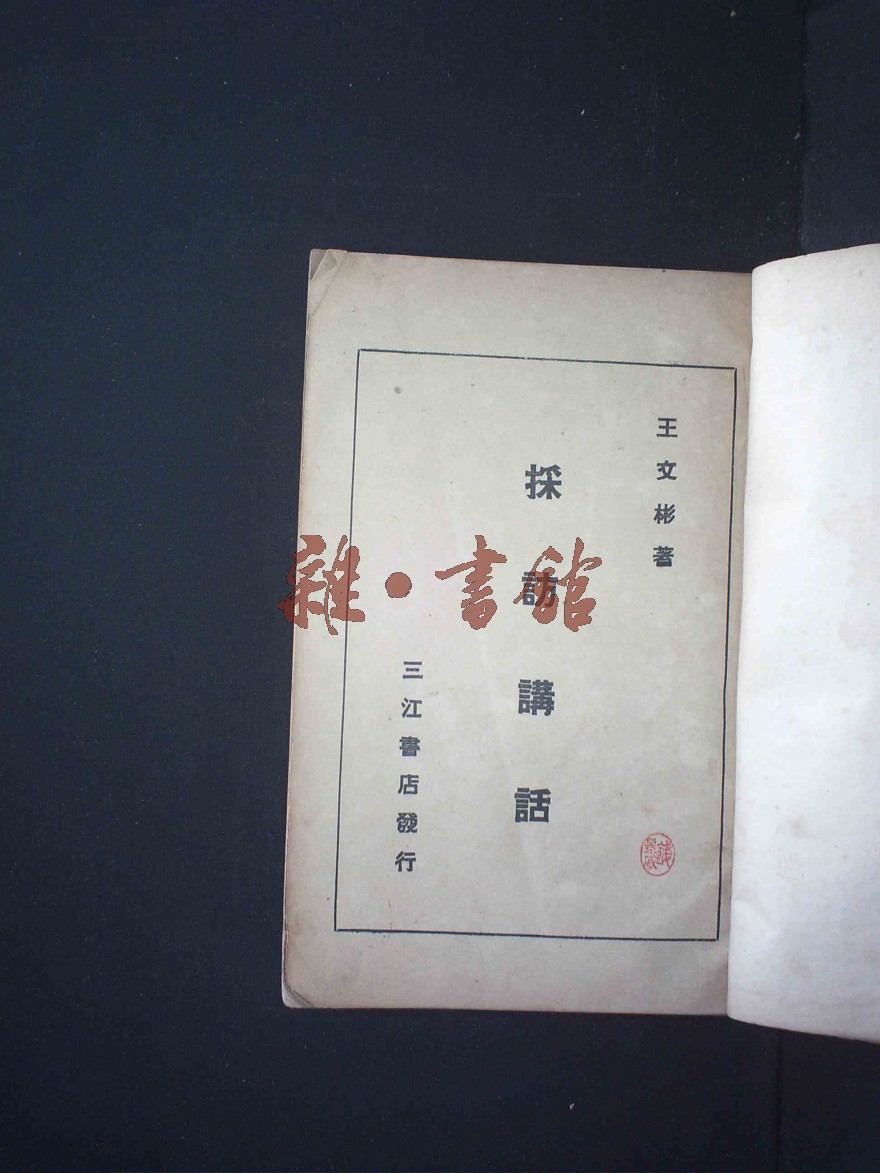 王文彬著
採訪講話
三江書店發行
雜·書館